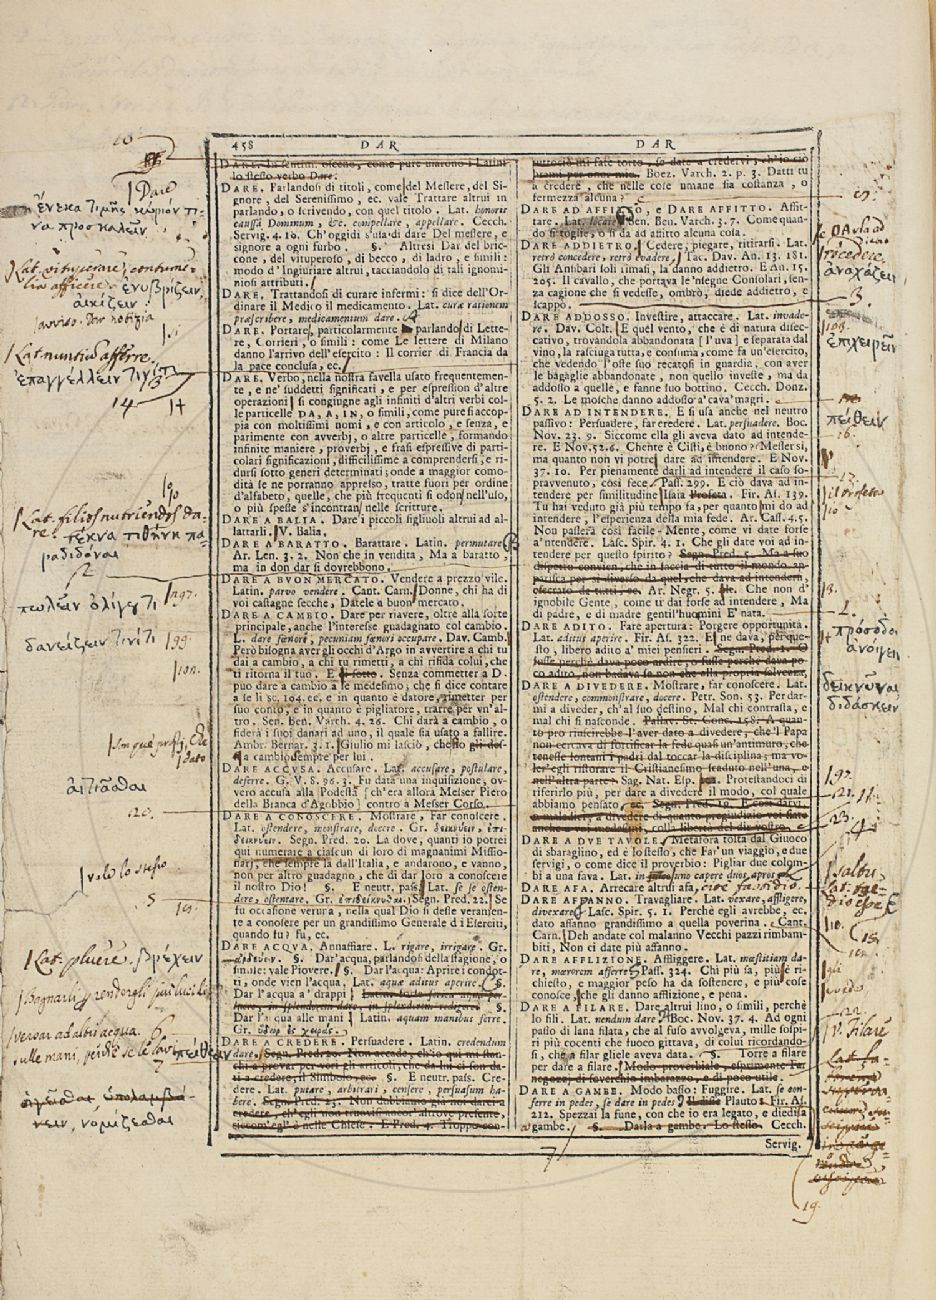 458 DAR DAR
DARE. In sentim. osceno, come pure usarono i Latini
lo stesso verbo Dare.
DARE. Parlandosi di titoli, come del Messere, del Si-
gnore, del Serenissimo, ec. vale Trattare altrui in
parlando, o scrivendo, con quel titolo. Lat. honoris
caussâ Dominum, &c. compellare, appellare. Cecch.
Servig. 4. 10. Ch'oggi s'usa di dare Del messere, e
signore a ogni furbo. §. Altresì Dar del bric-
cone, del vituperoso, di becco, di ladro, e simili:
modo d'Ingiuriare altrui, tacciandolo di tali ignomi-
niosi attributi.
DARE, Trattandosi di curare infermi: si dice dell'Or-
dinare il Medico il medicamento. Lat. curæ rationem
præscribere, medicamentum dare.
DARE. Portare, particolarmente parlando di Lette-
re, Corrieri, o simili: come Le lettere di Milano
danno l'arrivo dell'esercito: Il corrier di Francia da
la pace conclusa, ec.
DARE. Verbo, nella nostra favella usato frequentemen-
te, e ne' suddetti significati, e per espression d'altre
operazioni si congiugne agl'infiniti d'altri verbi col-
le particelle DA, A, IN, o simili, come pure si accop-
pia con moltissimi nomi, e con articolo, e senza, e
parimente con avverbj, o altre particelle, formando
infinite maniere, proverbj, e frasi espressive di parti-
colari significazioni, difficilissime a comprendersi, e ri-
dursi sotto generi determinati; onde a maggior como-
dità se ne porranno appresso, tratte fuori per ordine
d'alfabeto, quelle, che più frequenti si odon nell'uso,
o più spesse s'incontran nelle scritture.
DARE A BALIA. Dare i piccoli figliuoli altrui ad al-
lattarli. V. Balia.
DARE A BARATTO. Barattare. Latin. permutare.
Ar. Len. 3. 2. Non che in vendita, Ma a baratto,
ma in don dar si dovrebbono.
DARE A BUON MERCATO. Vendere a prezzo vile.
Latin. parvo vendere. Cant. Carn. Donne, chi ha di
voi castagne secche, Datele a buon mercato.
DARE A CAMBIO. Dare per riavere, oltre alla sorte
principale, anche l'interesse guadagnato col cambio.
L. dare fœnori, pecuniam fœnori occupare. Dav. Camb.
Però bisogna aver gli occhi d'Argo in avvertire a chi tu
dai a cambio, a chi tu rimetti, a chi rifida colui, che
ti ritorna il tuo. E sotto. Senza commetter a D.
puo dare a cambio a se medesimo, che si dice contare
a se li sc. 104. ec. e in quanto è datore, rimetter per
suo conto, e in quanto è pigliatore, trarre per un'al-
tro. Sen. Ben. Varch. 4. 26. Chi darà a cambio, o
fiderà i suoi danari ad uno, il quale sia usato a fallire.
Ambr. Bernar. 3. 1. Giulio mi lasciò, che
a cambio sempre per lui.
DARE ACCUSA. Accusare. Lat. accusare, postulare,
deferre. G. V. 8. 96. 3. Fu data una inquisizione, ov-
vero accusa alla Podestà [ch'era allora Messer Piero
della Branca d'Agobbio] contro a Messer Corso.
DARE A CONOSCERE. Mostrare, Far conoscere.
Lat. ostendere, monstrare, docere. Gr. δεικνύειν, ἐπι-
δεικνύειν. Segn. Pred. 20. La dove, quanti io potrei
qui numerare a ciascun di loro di magnanimi Missio-
narj, che sempre là dall'Italia, e andarono, e vanno,
non per altro guadagno, che di dar loro a conoscere
il nostro Dio! §. E neutr. pass. Lat. se se osten-
dere, ostentare. Gr. ἐπιδείκνυσθαι. Segn. Pred. 22. Se
fu occasione veruna, nella qual Dio si desse veramen-
te a conoscere per un grandissimo Generale d'Eserciti,
quando fu? fu, ec.
DARE ACQUA. Annaffiare. L. rigare, irrigare. Gr.
§. Dar'acqua, parlandosi della stagione, o
simile: vale Piovere. §. Dar l'acqua: Aprire i condot-
ti, onde vien l'acqua, Lat. aquæ aditus aperire. §.
Dar l'acqua a' drappi
Dar l'acqua alle mani. Latin. aquam manibus ferre.
Gr. ὕδωρ εἰς χεῖρας.
DARE A CREDERE. Persuadere. Latin. credendum
dare. Segn. Pred. 20. Non accade, ch'io qui mi stan-
chi a provar per veri gli articoli, che da lui ci son da-
ti a credere, il Simbolo, ec. §. E neutr. pass. Cre-
dere. Lat. putare, arbitrari, censere, persuasum ha-
bere. Segn. Pred. 23. Non dobbiamo già darci a
credere, ch'egli non truovisi ancor'altrove presente,
siccom'egl'è nelle Chiese. E Pred. 4. Troppo con-
tuttociò mi fate torto, se date a credervi, ch'io ciò
brami per amor mio. Boez. Varch. 2. p. 3. Datti tu
a credere, che nelle cose umane sia costanza, o
fermezza alcuna?
DARE AD AFFITTO, e DARE AFFITTO. Affit-
tare. Lat. locare. Sen. Ben. Varch. 3. 7. Come quan-
do si toglie, o si dà ad affitto alcuna cosa.
DARE ADDIETRO. Cedere, piegare, ritirarsi. Lat.
retrò concedere, retrò evadere. Tac. Dav. An. 13. 181.
Gli Antibari soli rimasi, la danno addietro. E An. 15.
205. Il cavallo, che portava le 'nsegne Consolari, sen-
za cagione che si vedesse, ombrò, diede addietro, e
scappò.
DARE ADDOSSO. Investire, attaccare. Lat. invade-
re. Dav. Colt. E quel vento, che è di natura disec-
cativo, trovandola abbandonata [l'uva] e separata dal
vino, la rasciuga tutta, e consuma, come fa un'esercito,
che vedendo l'oste suo recatosi in guardia, con aver
le bagaglie abbandonate, non quello investe, ma dà
addosso a quelle, e fanne suo bottino. Cecch. Donz.
5. 2. Le mosche danno addosso a' cava' magri.
DARE AD INTENDERE. E si usa anche nel neutro
passivo: Persuadere, far credere. Lat. persuadere. Boc.
Nov. 23. 9. Siccome ella gli aveva dato ad intende-
re. E Nov. 52. 6. Chente è Cisti, è buono? Messer sì,
ma quanto non vi potrei dare ad intendere. E Nov.
37. 10. Per pienamente darli ad intendere il caso so-
pravvenuto, così fece. Pass. 299. E ciò dava ad in-
tendere per similitudine Isaia Profeta. Fir. As. 139.
Tu hai veduto già più tempo fa, per quanto mi do ad
intendere, l'esperienza della mia fede. Ar. Cass. 4. 5.
Non passerà così facile-Mente, come vi date forse
a'ntendere. Lasc. Spir. 4. 1. Che gli date voi ad in-
tendere per questo spirito? Segn. Pred. 5. Ma a suo
dispetto convien, che in faccia di tutto il mondo ap-
parisca per sì diverso da quel, che dava ad intendere,
Ar. Negr. 5. Che non d'
ignobile Gente, come ti dai forse ad intendere, Ma
di padre, e di madre gentil'huomini E' nata.
DARE ADITO. Fare apertura: Porgere opportunità.
Lat. aditus aperire. Fir. As. 322. E ne dava, per que-
sto, libero adito a' miei pensieri. Segn. Pred. 1. O
fusse perchè dava poco ardire, o fusse perchè dava po-
co adito, non badava se non che alla propria salvezza.
DARE A DIVEDERE. Mostrare, far conoscere. Lat.
ostendere, commonstrare, docere. Petr. Son. 53. Per dar-
mi a diveder, ch'al suo destino, Mal chi contrasta, e
mal chi si nasconde. Pallav. St. Conc. 158. A quan-
to pro riuscirebbe l'aver dato a divedere, che 'l Papa
non cercava di fortificar la fede quas'un'antimuro, che
tenesse lontani i padri dal toccar la disciplina; ma vo-
ler'egli ristorare il Cristianesimo scaduto nell'una, e
nell'altra parte. Sag. Nat. Esp. Protestandoci di
riferirlo più, per dare a divedere il modo, col quale
abbiamo pensato, ec. Segn. Pred. 19. E così darvi
a divedere di quanto pregiudizio voi siate
anche a voi medesimi, colla libertà del dir vostro.
DARE A DUE TAVOLE. Metafora tolta dal Giuoco
di sbaraglino, ed è lo stesso, che Far un viaggio, e due
servigi, o come dice il proverbio: Pigliar due colom-
bi a una fava. Lat. in uno capere duos apros
DARE AFA. Arrecare altrui afa, cioè fastidio.
DARE AFFANNO. Travagliare. Lat. vexare, affligere,
divexare. Lasc. Spir. 5. 1. Perchè egli avrebbe, ec.
dato affanno grandissimo a quella poverina. Cant.
Carn. Deh andate col malanno Vecchi pazzi rimbam-
biti, Non ci date più affanno.
DARE AFFLIZIONE. Affliggere. Lat. mæstitiam da-
re, mærorem afferre. Pass. 324. Chi più sa, più è ri-
chiesto, e maggior peso ha da sostenere, e più cose
conosce, che gli danno afflizione, e pena.
DARE A FILARE. Dare altrui lino, o simili, perchè
lo fili. Lat. nendum dare. Boc. Nov. 37. 4. Ad ogni
passo di lana filata, che al fuso avvolgeva, mille sospi-
ri più cocenti che fuoco gittava, di colui ricordando-
si, che a filar gliele aveva data. §. Torre a filare
per dare a filare. Modo proverbiale, esprimente Far
negozj di soverchio imbarazzo, e di poco utile.
DARE A GAMBE. Modo basso: Fuggire. Lat. se con-
ferre in pedes, se dare in pedes. Plauto. Fir. As.
212. Spezzai la fune, con che io era legato, e diedila
a gambe. §. Darla a gambe. Lo stesso. Cecch.
Servig.
Dare
ἕνεκα τιμῆς κύριόν τι-
να προσκαλεῖν
Lat. vituperare, contume-
lia afficere. ἐνυβρίζειν,
αἰκίζειν
avviso. Dar notizia
Lat. nuntium afferre.
ἐπαγγέλλειν τινί τι
14 14
Lat. filios nutriendos da-
re. τέκνα τιθήνῃ πα-
ραδιδόναι
πωλεῖν ὀλίγου τι
δανείζειν τινί τι 199
αἰτιᾶσθαι
20.
volo lo stesso
5
Lat. pluere. βρέχειν
versar ad altri acqua
sulle mani, perchè se le lavi
πείθειν
ἡγεῖσθαι ὑπολαμβά-
νειν, νομίζεσθαι
ἀναχάζειν
3.
ἐπιχειρεῖν
πείθειν
16.
17.
18.
πρόσοδον
ἀνοίγειν
δεικνύναι
διδάσκειν
21.
23.
22.
V. Filare
19.